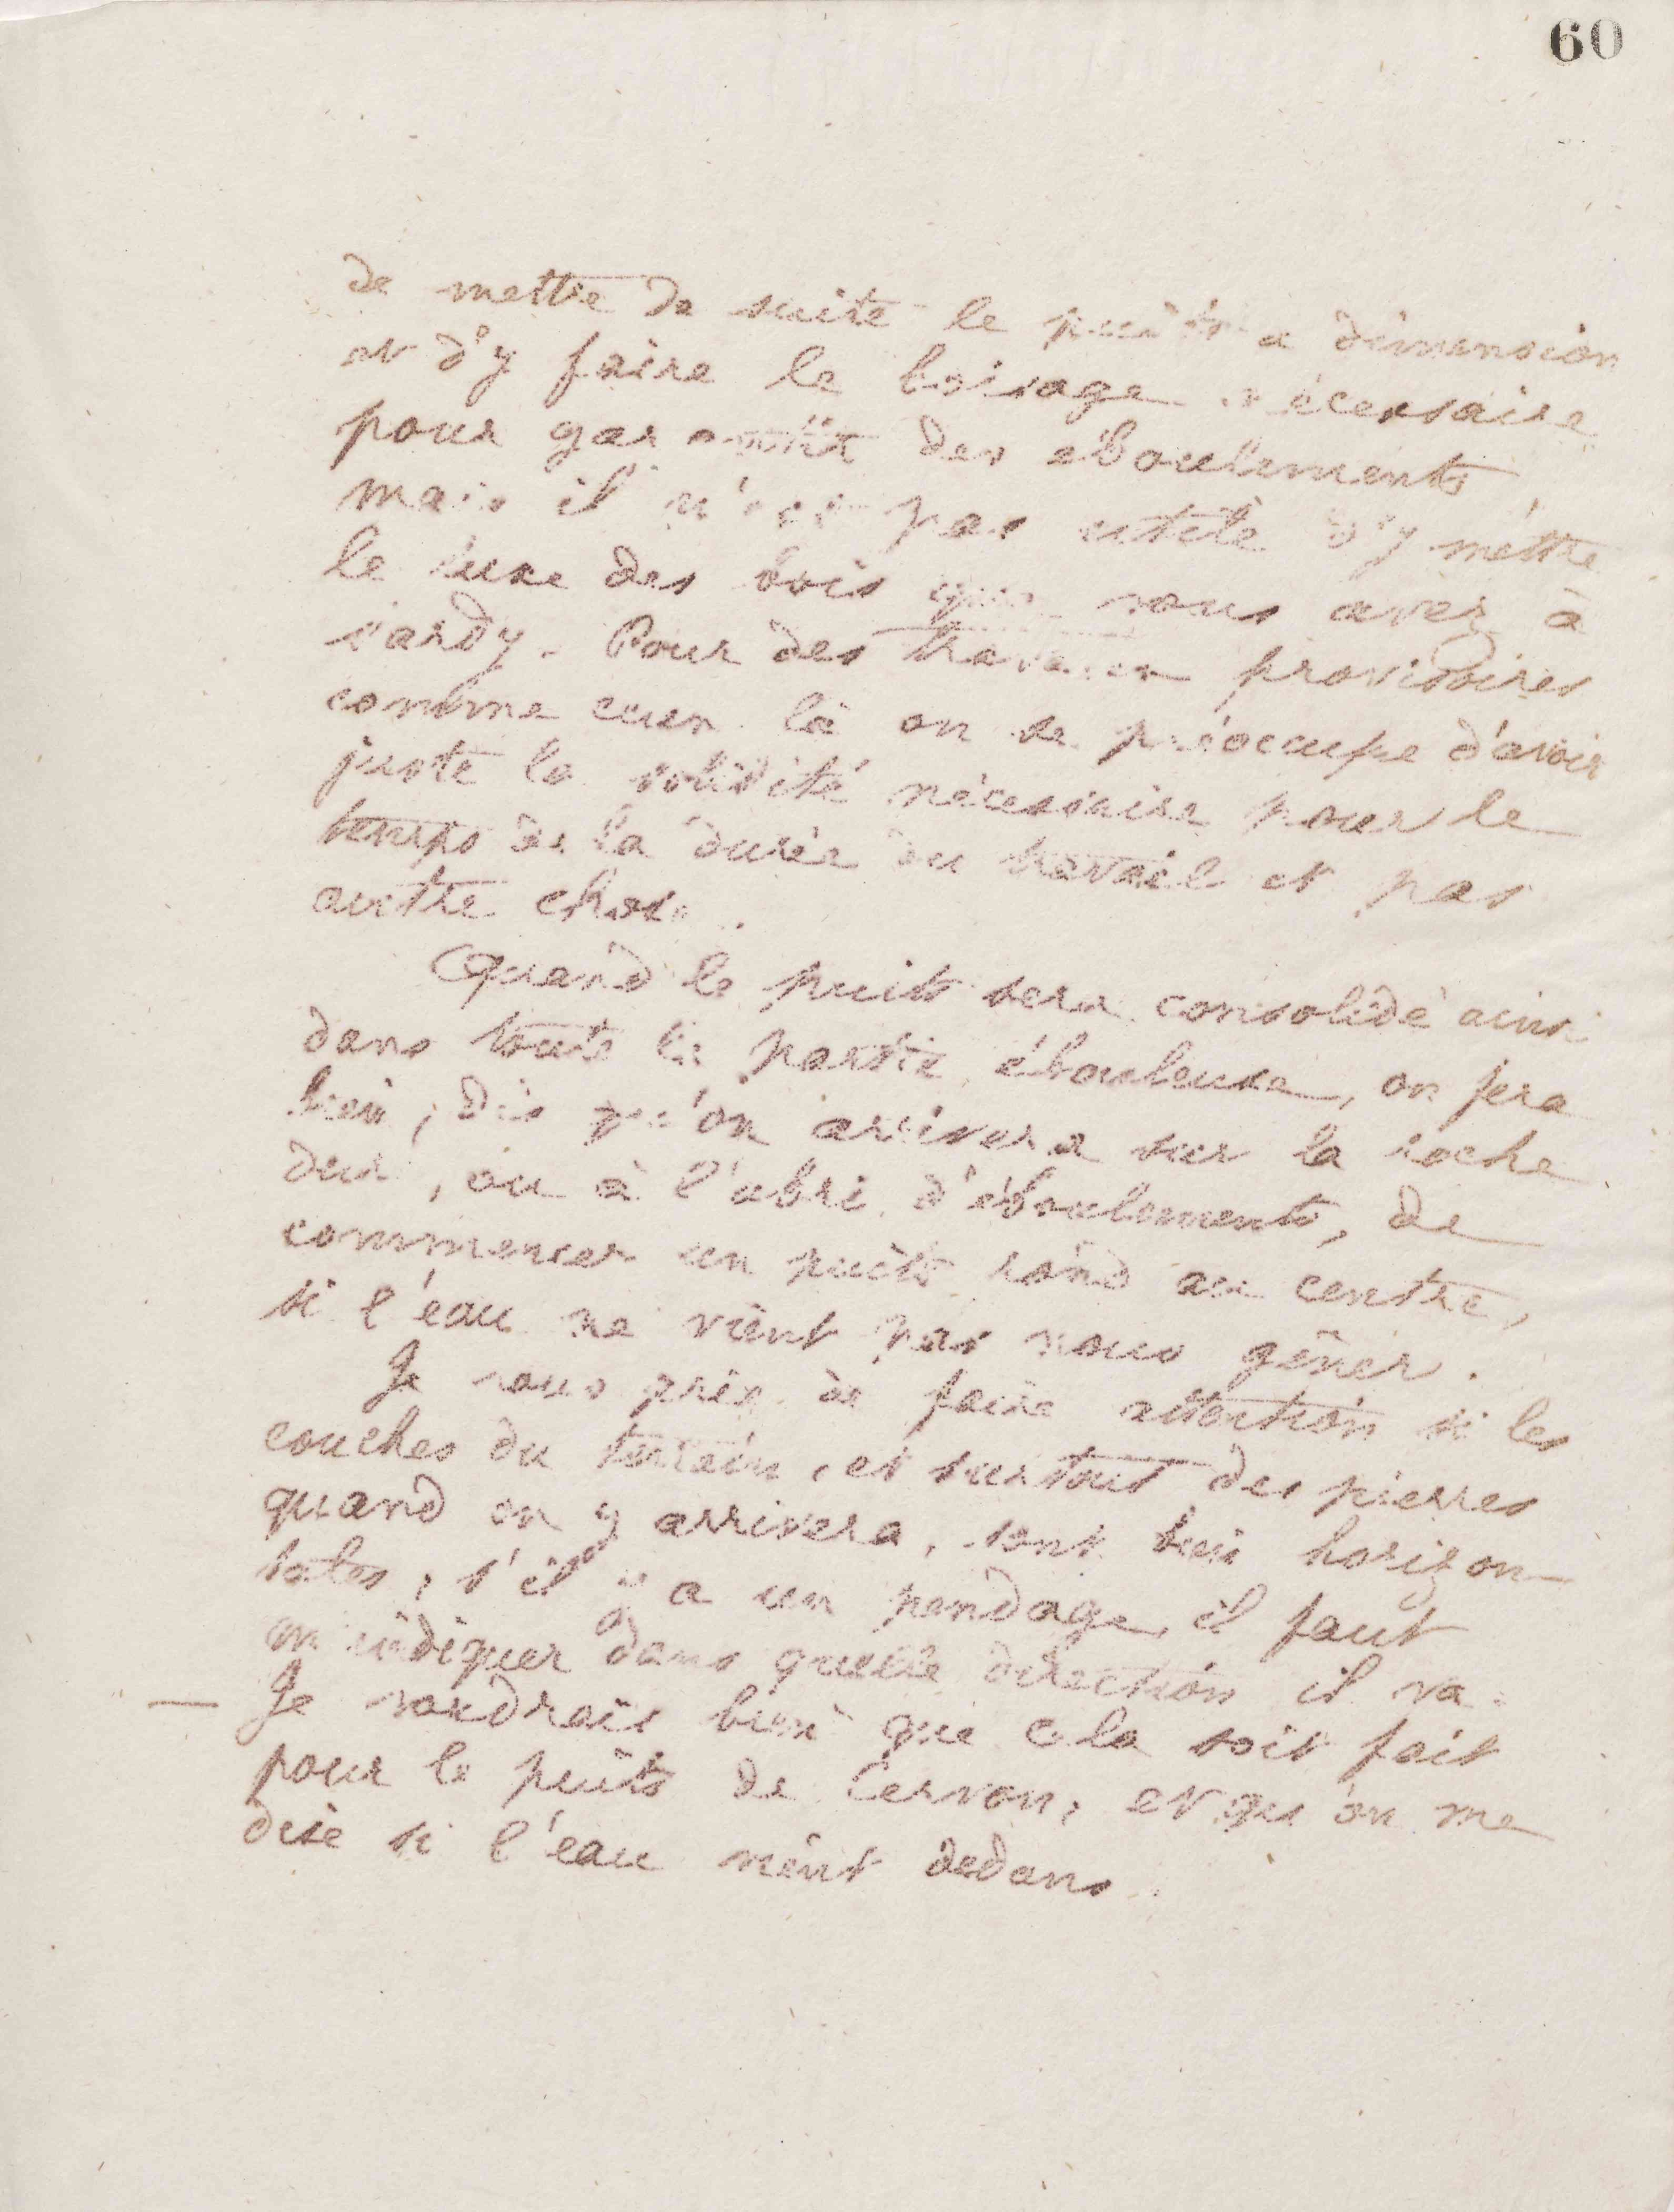 60
de mettre de suite le puits a dimension
et d'y faire le boisage nécessaire
pour garantir des éboulements,
mais il n'est pas utile d'y mettre
le luxe des bois que vous avez à
Sardy. Pour des travaux provisoires
comme ceux là on se préocaupe d'avoir
juste la solidité nécessaire pour le
temps de la durée du travail et pas
autre chose.
Quand le puits sera consolidé ainsi
dans toute la partie ébouleuse, on fera
bien, dès qu'on arrivera sur la roche
dure, ou à l'abri d'éboulements, de
commencer un puits rond au centre,
si l'eau ne vient pas nous gêner.
Je vous prie de faire attention si les
couches du terrain, et surtout des pierres
quand on y arrivera, sont bien horizon-
tales, s'il y a un pendage, il faut
m'indiquer dans quelle direction il va.
— Je voudrais bien que cela soit fait
pour le puits de Cervon, et qu'on me
dise si l'eau vient dedans.